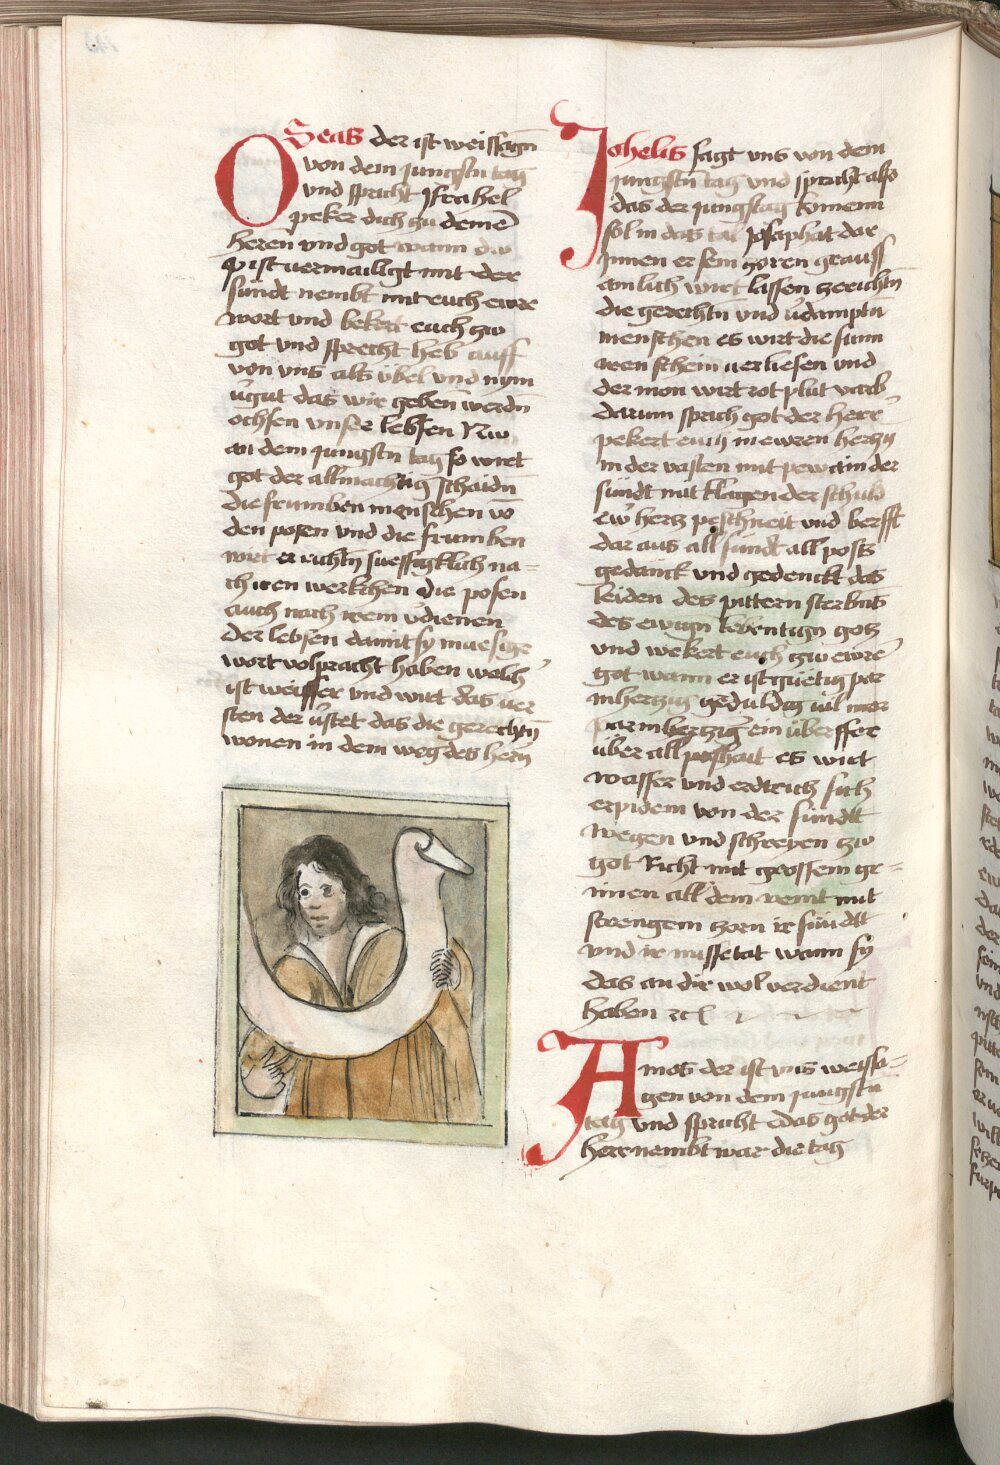 OSeas der ist weissagn̄
von dem jungstn tag
vnd spricht Israhel
peker dich zu deinē
heren vnd got wann du
pist uermailigt mit der
sündt nembt mit euch ewre
wort vnd bekert euch zw
got vnd sprecht heb auff
von vns als übel vnd nym
v̈gut das wir geben werdn̄
ochsen vnser lebsen Nw
an dem jungstn tag so wirt
got der allmachtig schaidn̄
die frumben menschen vō
den posen vnd die frumben
wirt er richtn̄ suessigklich na=
ch iren werkchen die posen
auch nach irem v̈dienen
der lebsen damit sy mue sige
wort volpracht haben welch'
ist weisser vnd wirt das uer
sten der v̈stet das die gerechtn̄
wonen in dem weg des hern̄
Johelis sagt vns von dem
jungstn̄ tag vnd spricht also
das der jungstag komenn
sol in das tal Josaphat dar
Innen er sein zoren grauss
amlich wirt lassen zerichtn̄
die gerechtn̄ vnd v̈damptn̄
menschen es wirt die sunn
iren schein uerliesen vnd
der mon wirt rot plut varb
darum sprich got der herr
pekert euch in ewren hertzn̄
in der vasten mit pewain der
sündt mit klagen der schuld
ew̄ hertz peschneit vnd berfft
dar aus all sündt all posts
gedanck vnd gedenckt das
leiden des pittern sterbns
des ewign lebentign gotz
vnd wekert euch zw ewrē
got wann er ist güetig par
mhertzig geduldig vil mer
parmhertzig ein überffer
über all poshait es wirt
wasser vnd erdtrich sich
erpidem von der sündtt
wegen vnd schreyen zw
got Richt mit grossem gr=
imen all dem remt mit
strengem zorn ir sündtt
vnd ir missetat wann sy
das an dir wol verdient
haben zc
Amos der ist vns weissa=
gen von dem jungstn
tag vnd spricht das got der
herr nembt war die tag